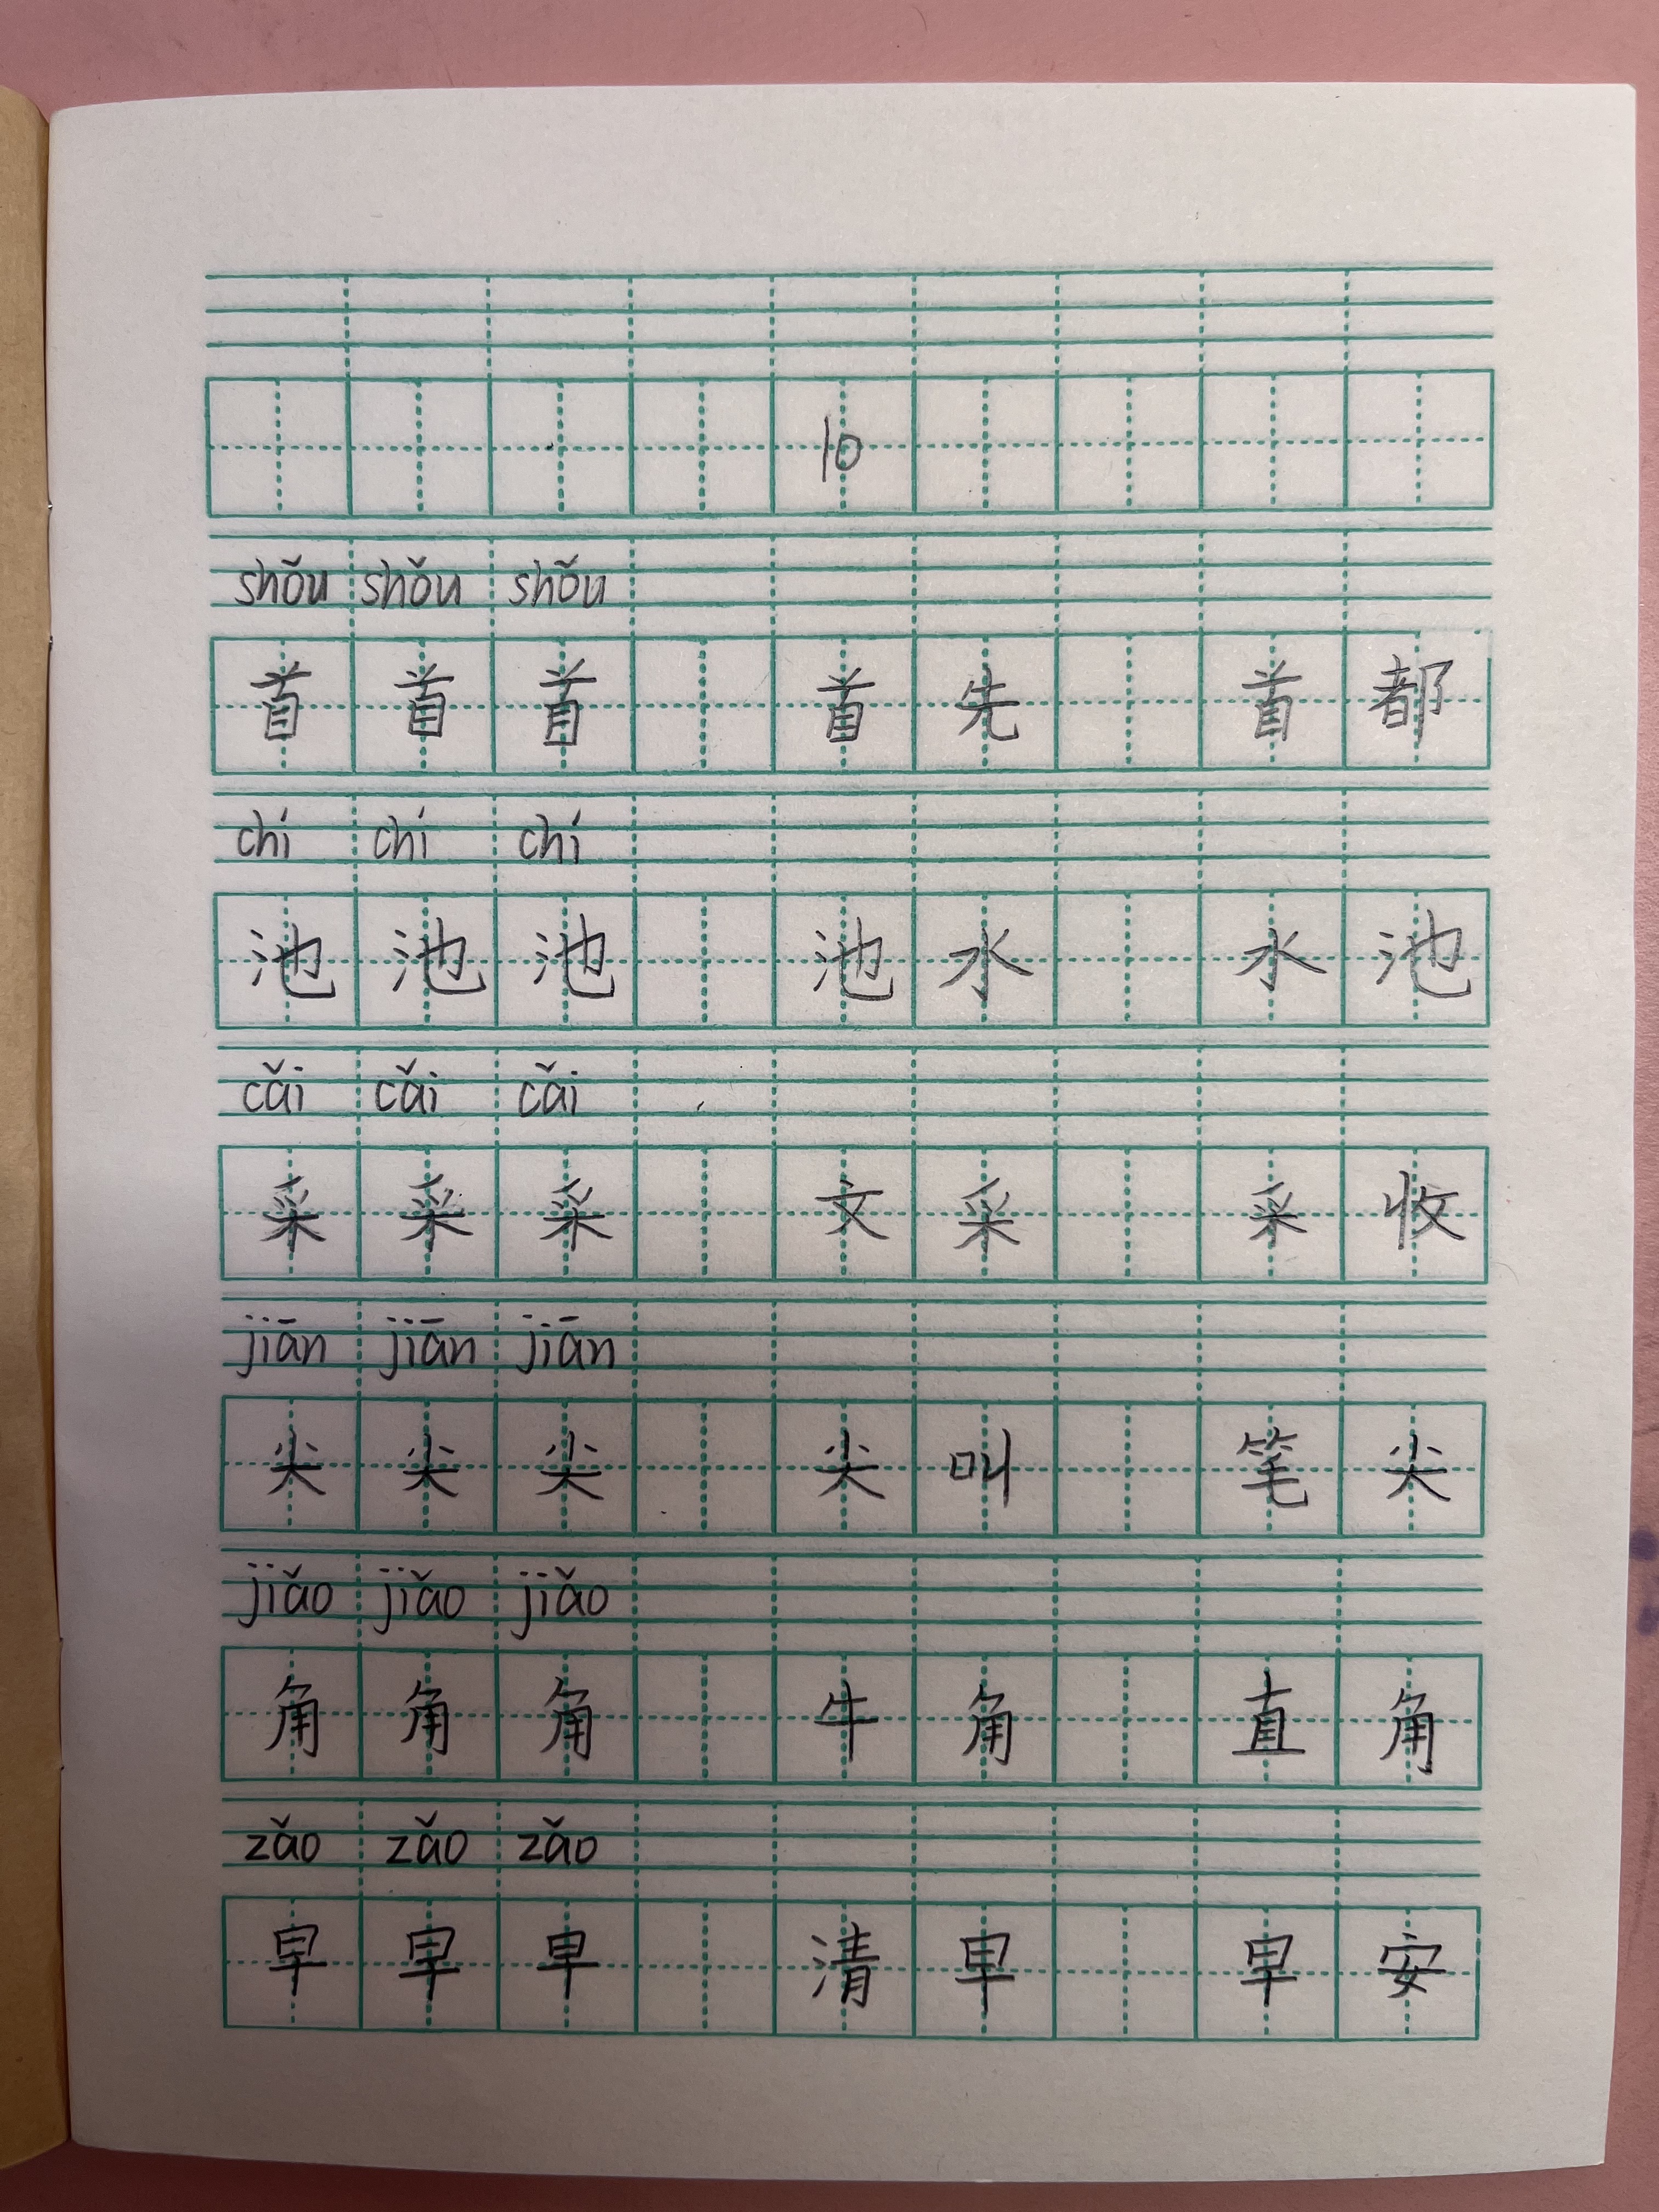 10
shǒu shǒu shǒu
首 首 首 首 先 首 都
chí chí chí
池 池 池 池 水 水 池
cǎi cǎi cǎi
采 采 采 文 采 采 收
jiān jiān jiān
尖 尖 尖 尖 叫 笔 尖
jiǎo jiǎo jiǎo
角 角 角 牛 角 直 角
zǎo zǎo zǎo
早 早 早 清 早 早 安